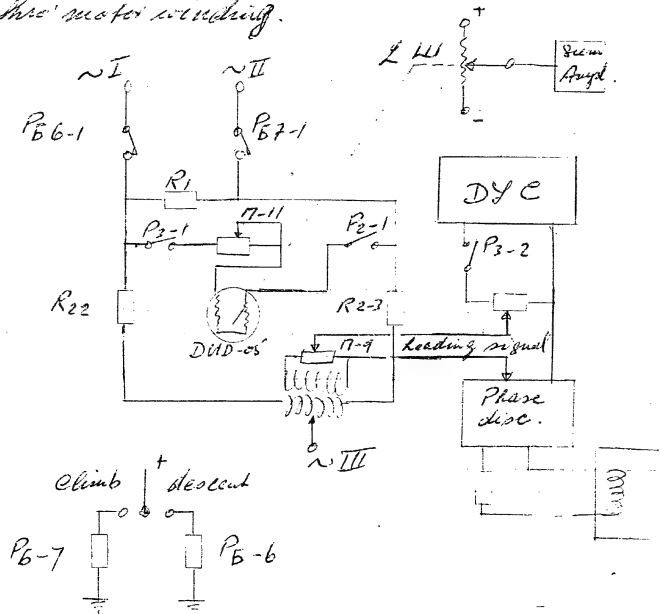 thro' motor winding.
~I
~II
+
Sum
Ampl.
-
РБ6-1
РБ7-1
R1
ДУС
Р3-1
П-11
Р2-1
Р3-2
R22
R2-3
П-9
heading signal
Phase
disc.
~III
+
climb
descent
РБ-7
РБ-6